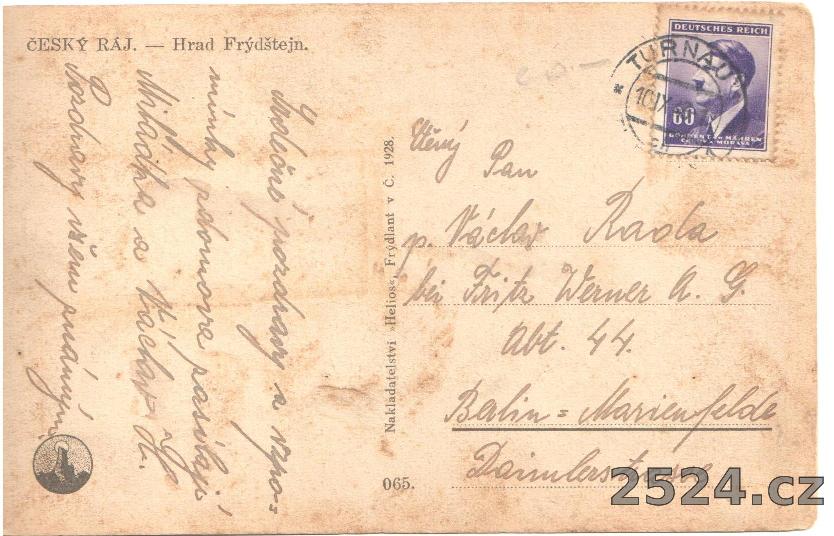 ČESKÝ RÁJ. — Hrad Frýdštejn.
Srdečné pozdravy a vzpo-
mínky z domova zasílají
Miládka a Václav H.
Pozdravy všem známým.
Nakladatelství »Helios«, Frýdlant v Č. 1928.
065.
DEUTSCHES REICH
60
BÖHMEN u. MÄHREN
ČECHY A MORAVA
TURNAU
10 IX
Ctěný
Pan
p. Václav Rada
bei Fritz Werner A. G.
Abt. 44.
Berlin = Marienfelde
Daimlerstrasse
2524.cz